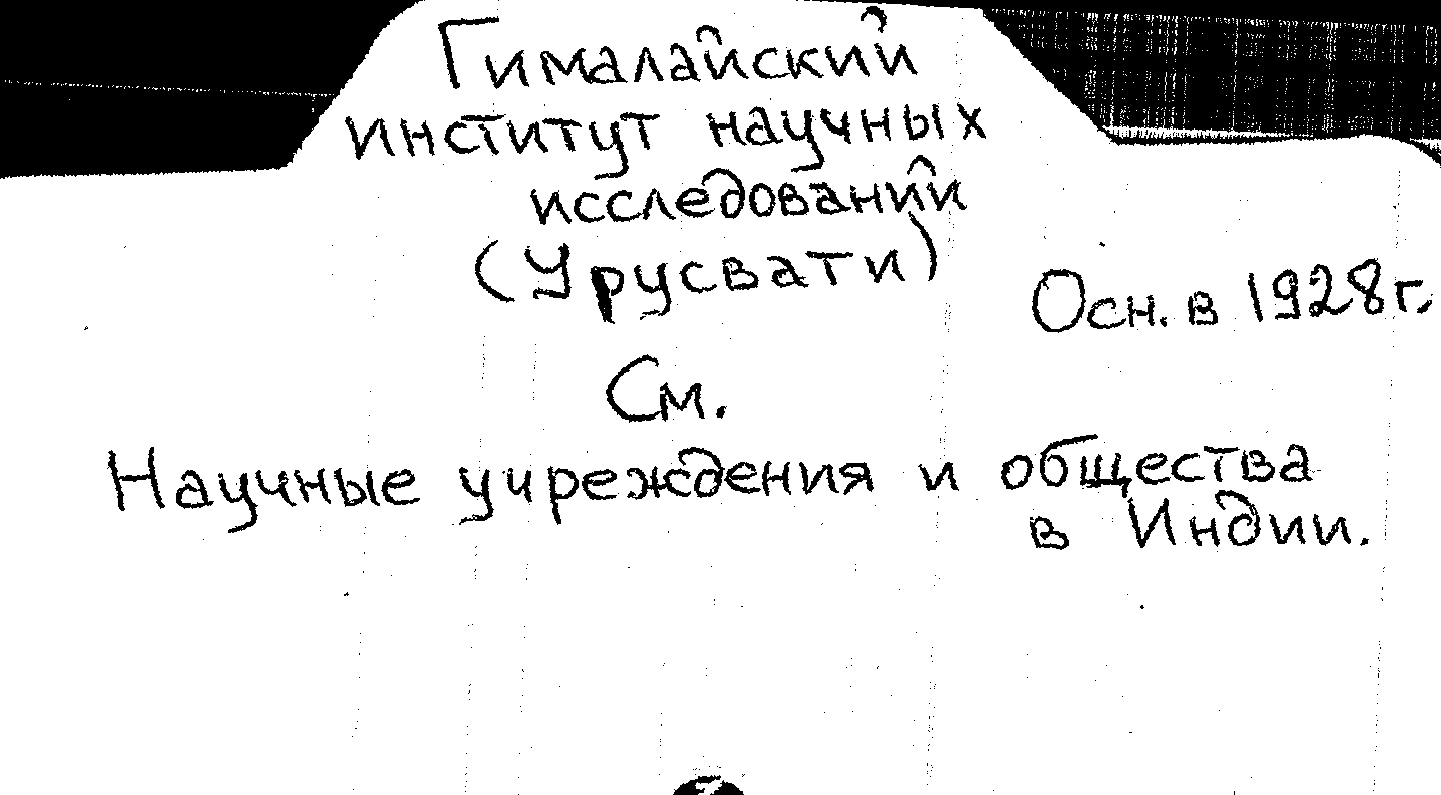 Гималайский
институт научных
исследований
(Урусвати)
Осн. в 1928 г.
См.
Научные учреждения и общества
в Индии.